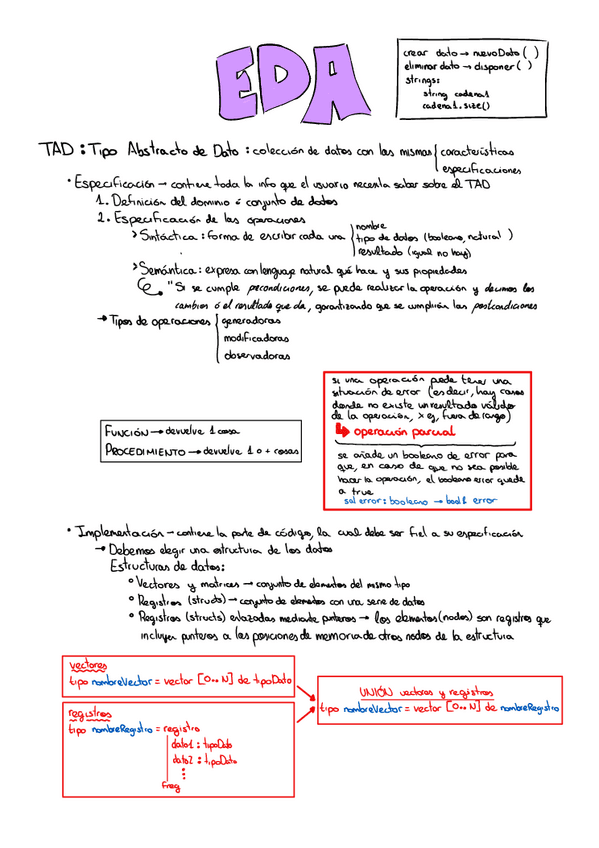 EDA
crear dato → nuevoDato ( )
eliminar dato → disponer ( )
strings:
string cadena1
cadena1.size()
TAD : Tipo Abstracto de Dato : colección de datos con las mismas { características
especificaciones
• Especificación → contiene toda la info que el usuario necesita saber sobre el TAD
1. Definición del dominio ó conjunto de datos
2. Especificación de las operaciones
> Sintáctica : forma de escribir cada una { nombre
tipo de datos (booleano, natural )
resultado (igual no hay)
> Semántica : expresa con lenguaje natural qué hace y sus propiedades
"Si se cumple precondiciones, se puede realizar la operación y decimos los
cambios ó el resultado que da, garantizando que se cumplirán las postcondiciones
→ Tipos de operaciones { generadoras
modificadoras
observadoras
si una operación puede tener una
situación de error (es decir, hay casos
donde no existe un resultado válido
de la operación, x eg, fuera de rango)
↳ operación parcial
se añade un booleano de error para
que, en caso de que no sea posible
hacer la operación, el booleano error quede
a true
sal error: booleano → bool& error
FUNCIÓN → devuelve 1 cosa
PROCEDIMIENTO → devuelve 1 o + cosas
• Implementación → contiene la parte de código, la cual debe ser fiel a su especificación
→ Debemos elegir una estructura de los datos
Estructuras de datos:
° Vectores y matrices → conjunto de elementos del mismo tipo
° Registros (structs) → conjunto de elementos con una serie de datos
° Registros (structs) enlazados mediante punteros → los elementos (nodos) son registros que
incluyen punteros a las posiciones de memoria de otros nodos de la estructura
vectores
tipo nombreVector = vector [0..N] de tipoDato
registros
tipo nombreRegistro = registro
dato1 : tipoDato
dato2 : tipoDato
⋮
freg
UNIÓN vectores y registros
tipo nombreVector = vector [0..N] de nombreRegistro